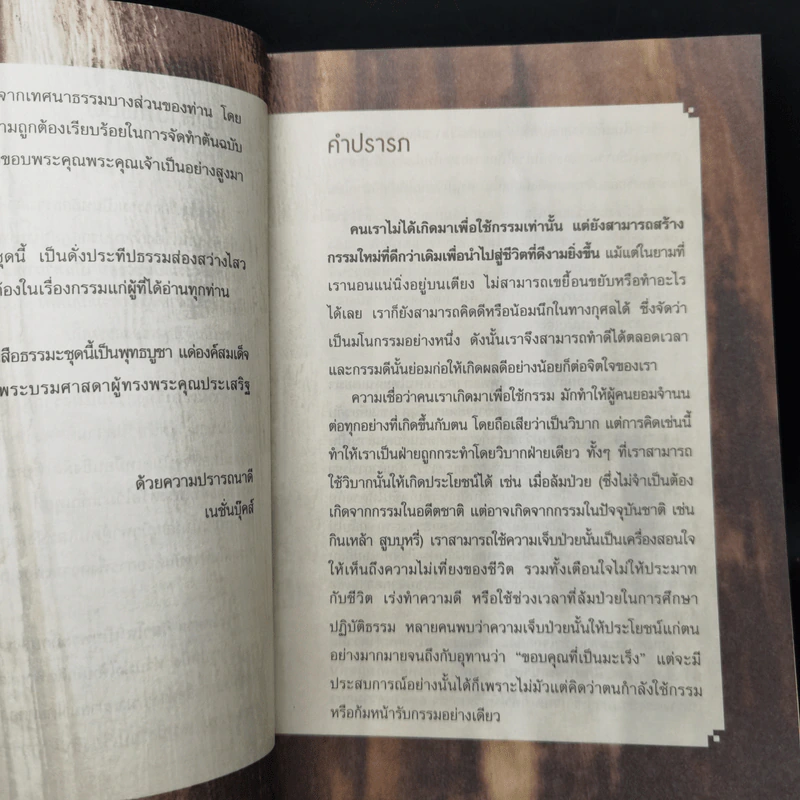 จากเทศนาธรรมบางส่วนของท่าน โดย
ามถูกต้องเรียบร้อยในการจัดทำต้นฉบับ
ขอบพระคุณพระคุณเจ้าเป็นอย่างสูงมา
ชุดนี้ เป็นดั่งประทีปธรรมส่องสว่างไสว
ต้องในเรื่องกรรมแก่ผู้ที่ได้อ่านทุกท่าน
สือธรรมะชุดนี้เป็นพุทธบูชา แด่องค์สมเด็จ
พระบรมศาสดาผู้ทรงพระคุณประเสริฐ
ด้วยความปรารถนาดี
เนชั่นบุ๊คส์
คำปรารภ
คนเราไม่ได้เกิดมาเพื่อใช้กรรมเท่านั้น แต่ยังสามารถสร้าง
กรรมใหม่ที่ดีกว่าเดิมเพื่อนำไปสู่ชีวิตที่ดีงามยิ่งขึ้น แม้แต่ในยามที่
เรานอนแน่นิ่งอยู่บนเตียง ไม่สามารถเขยื้อนขยับหรือทำอะไร
ได้เลย เราก็ยังสามารถคิดดีหรือน้อมนึกในทางกุศลได้ ซึ่งจัดว่า
เป็นมโนกรรมอย่างหนึ่ง ดังนั้นเราจึงสามารถทำดีได้ตลอดเวลา
และกรรมดีนั้นย่อมก่อให้เกิดผลดีอย่างน้อยก็ต่อจิตใจของเรา
ความเชื่อว่าคนเราเกิดมาเพื่อใช้กรรม มักทำให้ผู้คนยอมจำนน
ต่อทุกอย่างที่เกิดขึ้นกับตน โดยถือเสียว่าเป็นวิบาก แต่การคิดเช่นนี้
ทำให้เราเป็นฝ่ายถูกกระทำโดยวิบากฝ่ายเดียว ทั้งๆ ที่เราสามารถ
ใช้วิบากนั้นให้เกิดประโยชน์ได้ เช่น เมื่อล้มป่วย (ซึ่งไม่จำเป็นต้อง
เกิดจากกรรมในอดีตชาติ แต่อาจเกิดจากกรรมในปัจจุบันชาติ เช่น
กินเหล้า สูบบุหรี่) เราสามารถใช้ความเจ็บป่วยนั้นเป็นเครื่องสอนใจ
ให้เห็นถึงความไม่เที่ยงของชีวิต รวมทั้งเตือนใจไม่ให้ประมาท
กับชีวิต เร่งทำความดี หรือใช้ช่วงเวลาที่ล้มป่วยในการศึกษา
ปฏิบัติธรรม หลายคนพบว่าความเจ็บป่วยนั้นให้ประโยชน์แก่ตน
อย่างมากมายจนถึงกับอุทานว่า “ขอบคุณที่เป็นมะเร็ง” แต่จะมี
ประสบการณ์อย่างนั้นได้ก็เพราะไม่มัวแต่คิดว่าตนกำลังใช้กรรม
หรือก้มหน้ารับกรรมอย่างเดียว